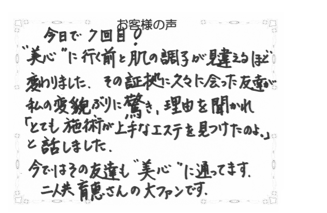 お客様の声
今日で7回目!
"美心"に行く前と肌の調子が見違えるほど
変わりました。その証拠に久々に会った友達が
私の変貌ぶりに驚き、理由を聞かれ
「とても施術が上手なエステを見つけたのよ。」
と話しました。
今ではその友達も"美心"に通ってます。
二人共育恵さんの大ファンです。